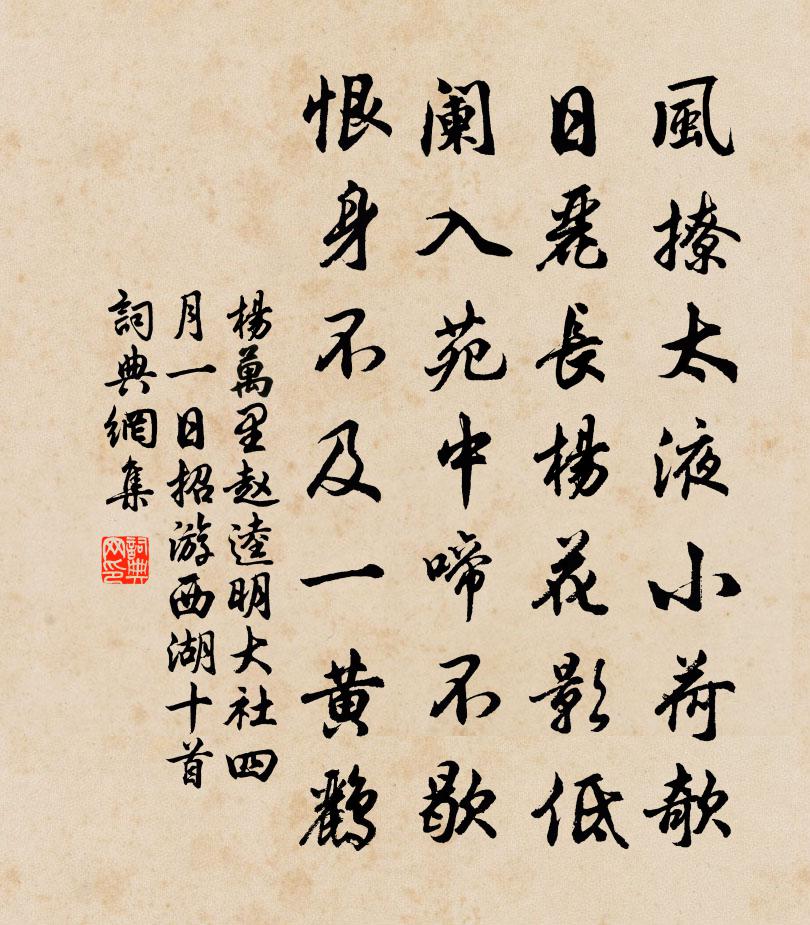 風撩太液小荷欹
日麗長楊花影低
闌入苑中啼不歇
恨身不及一黄鸝
楊萬里趙逵明大社四
月一日招游西湖十首
詞典網集
詞典网印